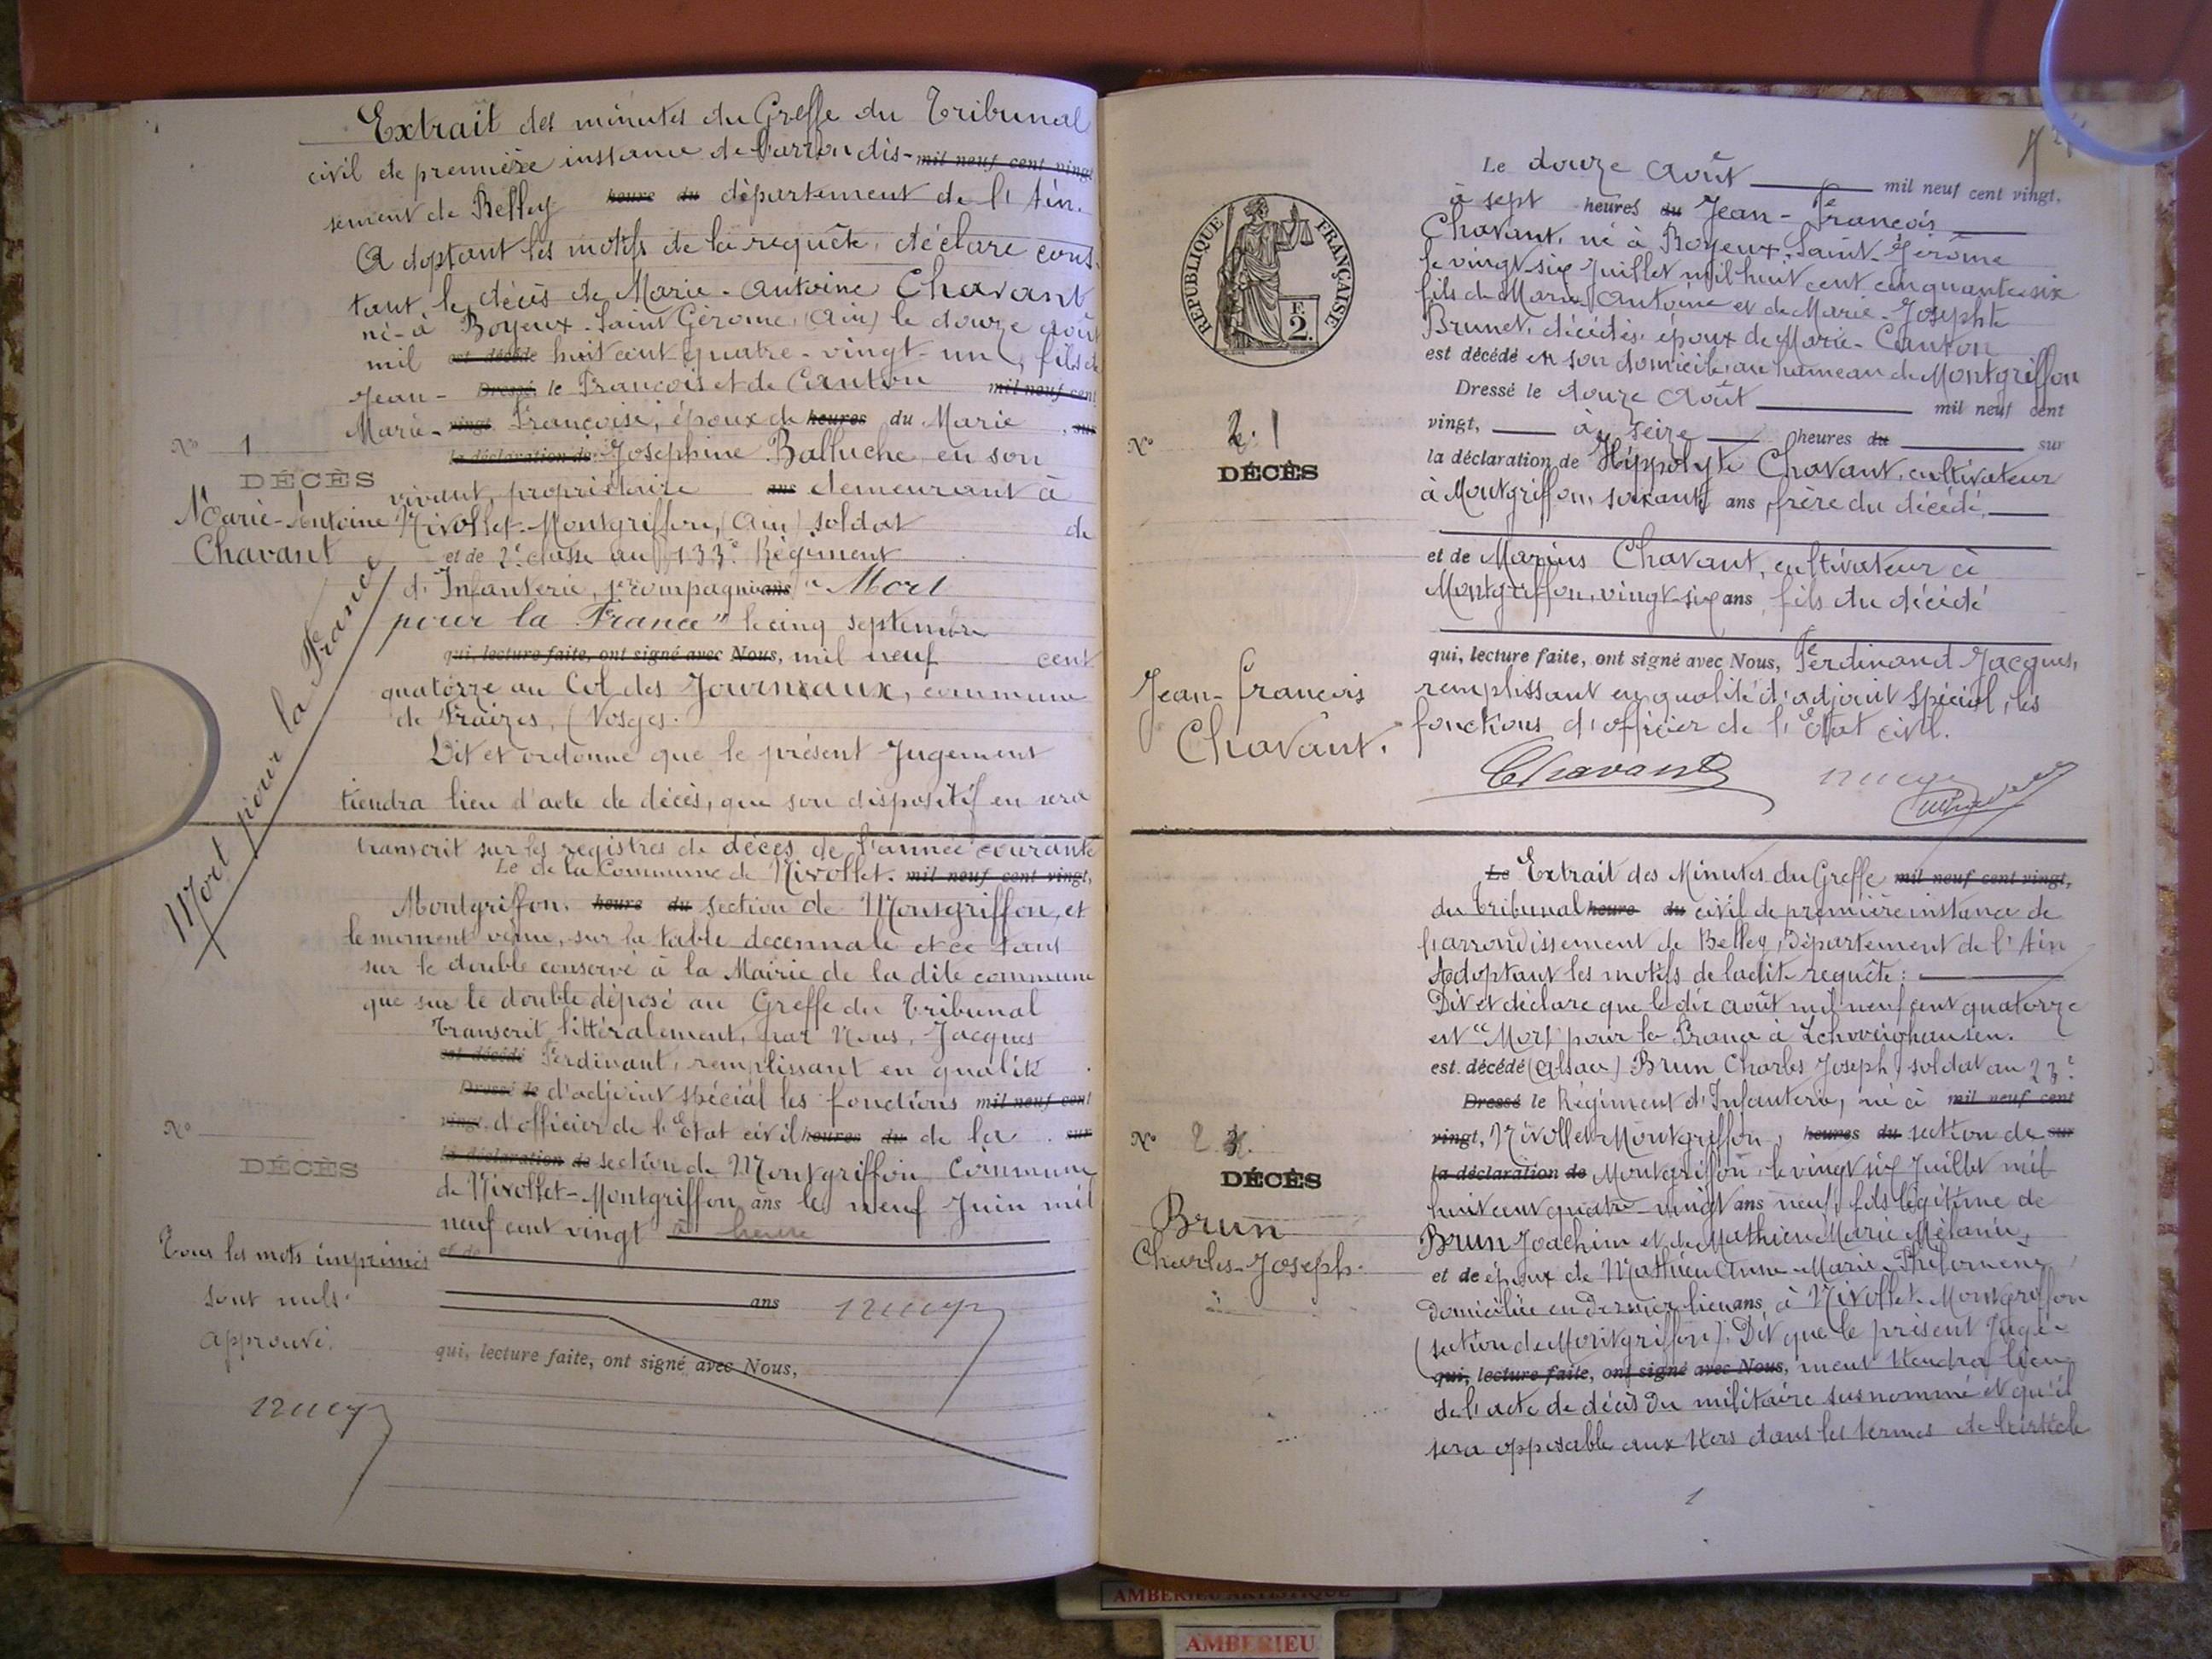 Extrait des minutes du Greffe du Tribunal
civil de première instance de l'arrondis- mil neuf cent vingt
sement de Belley heure du département de l'Ain.
Adoptant les motifs de la requête, déclare cons-
tant le décès de Marie-Antoine Chavant
né à Boyeux-Saint Gérome, (Ain) le douze août
mil est décédé huit cent quatre-vingt-un, fils de
Jean- Dressé le François et de Canton mil neuf cent
Marie- vingt Françoise, époux de heures du Marie, sur
la déclaration de Josephine Balluche en son
N° 1
DÉCÈS
Marie-Antoine
Chavant
Mort pour la France
vivant, propriétaire ans demeurant à
Nivollet-Montgriffon, (Ain) soldat de
et de 2e classe au 133e Régiment
d'Infanterie, 1re compagnie ans "Mort
pour la France" le cinq septembre
qui, lecture faite, ont signé avec Nous, mil neuf cent
quatorze au Col des Journeaux, commune
de Fraizes, (Vosges.
Dit et ordonne que le présent Jugement
tiendra lieu d'acte de décès, que son dispositif en sera
transcrit sur les registres de décès de l'année courante
Le de la Commune de Nivollet. mil neuf cent vingt,
Montgriffon. heure du section de Montgriffon, et
le moment venu, sur la table decennale et ce tant
sur le double conservé à la Mairie de la dite commune
que sur le double déposé au Greffe du Tribunal
Transcrit littéralement, par Nous, Jacques
est décédé Ferdinant, remplissant en qualité
Dressé le d'adjoint spécial les fonctions mil neuf cent
vingt d'officier de l'Etat civil heures du de la sur
la déclaration de section de Montgriffon Commune
de Nivollet-Montgriffon ans le neuf Juin mil
neuf cent vingt à heure
N°
DÉCÈS
Tous les mots imprimés
sont nuls.
approuvé.
et de
ans
qui, lecture faite, ont signé avec Nous,
RÉPUBLIQUE FRANÇAISE
F.
2.
Le douze Août mil neuf cent vingt,
à sept heures du Jean-François
Chavant, né à Boyeux-Saint-Jérôme
le vingt-six Juillet mil huit cent cinquante six
fils de Marie-Antoine et de Marie-Josephte
Brunet, décédés, époux de Marie-Canton
est décédé en son domicile, au hameau de Montgriffon
Dressé le douze Août mil neuf cent
vingt, à seize heures du sur
la déclaration de Hippolyte Chavant, cultivateur
à Montgriffon, soixante ans, frère du décédé,
et de Marius Chavant, cultivateur à
Montgriffon, vingt-six ans, fils du décédé
qui, lecture faite, ont signé avec Nous, Ferdinand Jacques,
remplissant en qualité d'adjoint spécial, les
fonctions d'officier de l'Etat civil.
N° 2.
DÉCÈS
Jean-François
Chavant.
Chavant
Le Extrait des Minutes du Greffe mil neuf cent vingt,
du Tribunal heure du civil de première instance de
l'arrondissement de Belley, Département de l'Ain
Adoptant les motifs de ladite requête:
Dit et déclare que le dix août mil neuf cent quatorze
est "Mort pour la France à Zchveighausen.
est décédé (Alsace) Brun Charles Joseph, soldat au 23e
Dressé le Régiment d'Infanterie, né à mil neuf cent
vingt, Nivollet-Montgriffon, heures du section de sur
la déclaration de Montgriffon, le vingt six Juillet mil
huit cent quatre-vingt ans neuf, fils légitime de
Brun Joachim et de Mathieu Marie Mélanie,
et de époux de Mathieu Anne-Marie-
domiciliée en dernier lieu ans, à Nivollet-Montgriffon
(section de Montgriffon). Dit que le présent Juge-
qui, lecture faite, ont signé avec Nous, ment tiendra lieu
de l'acte de décès du militaire susnommé et qu'il
sera opposable aux tiers dans les termes de l'article
N° 3.
DÉCÈS
Brun
Charles-Joseph.
AMBERIEU ARTISTIQUE
AMBERIEU